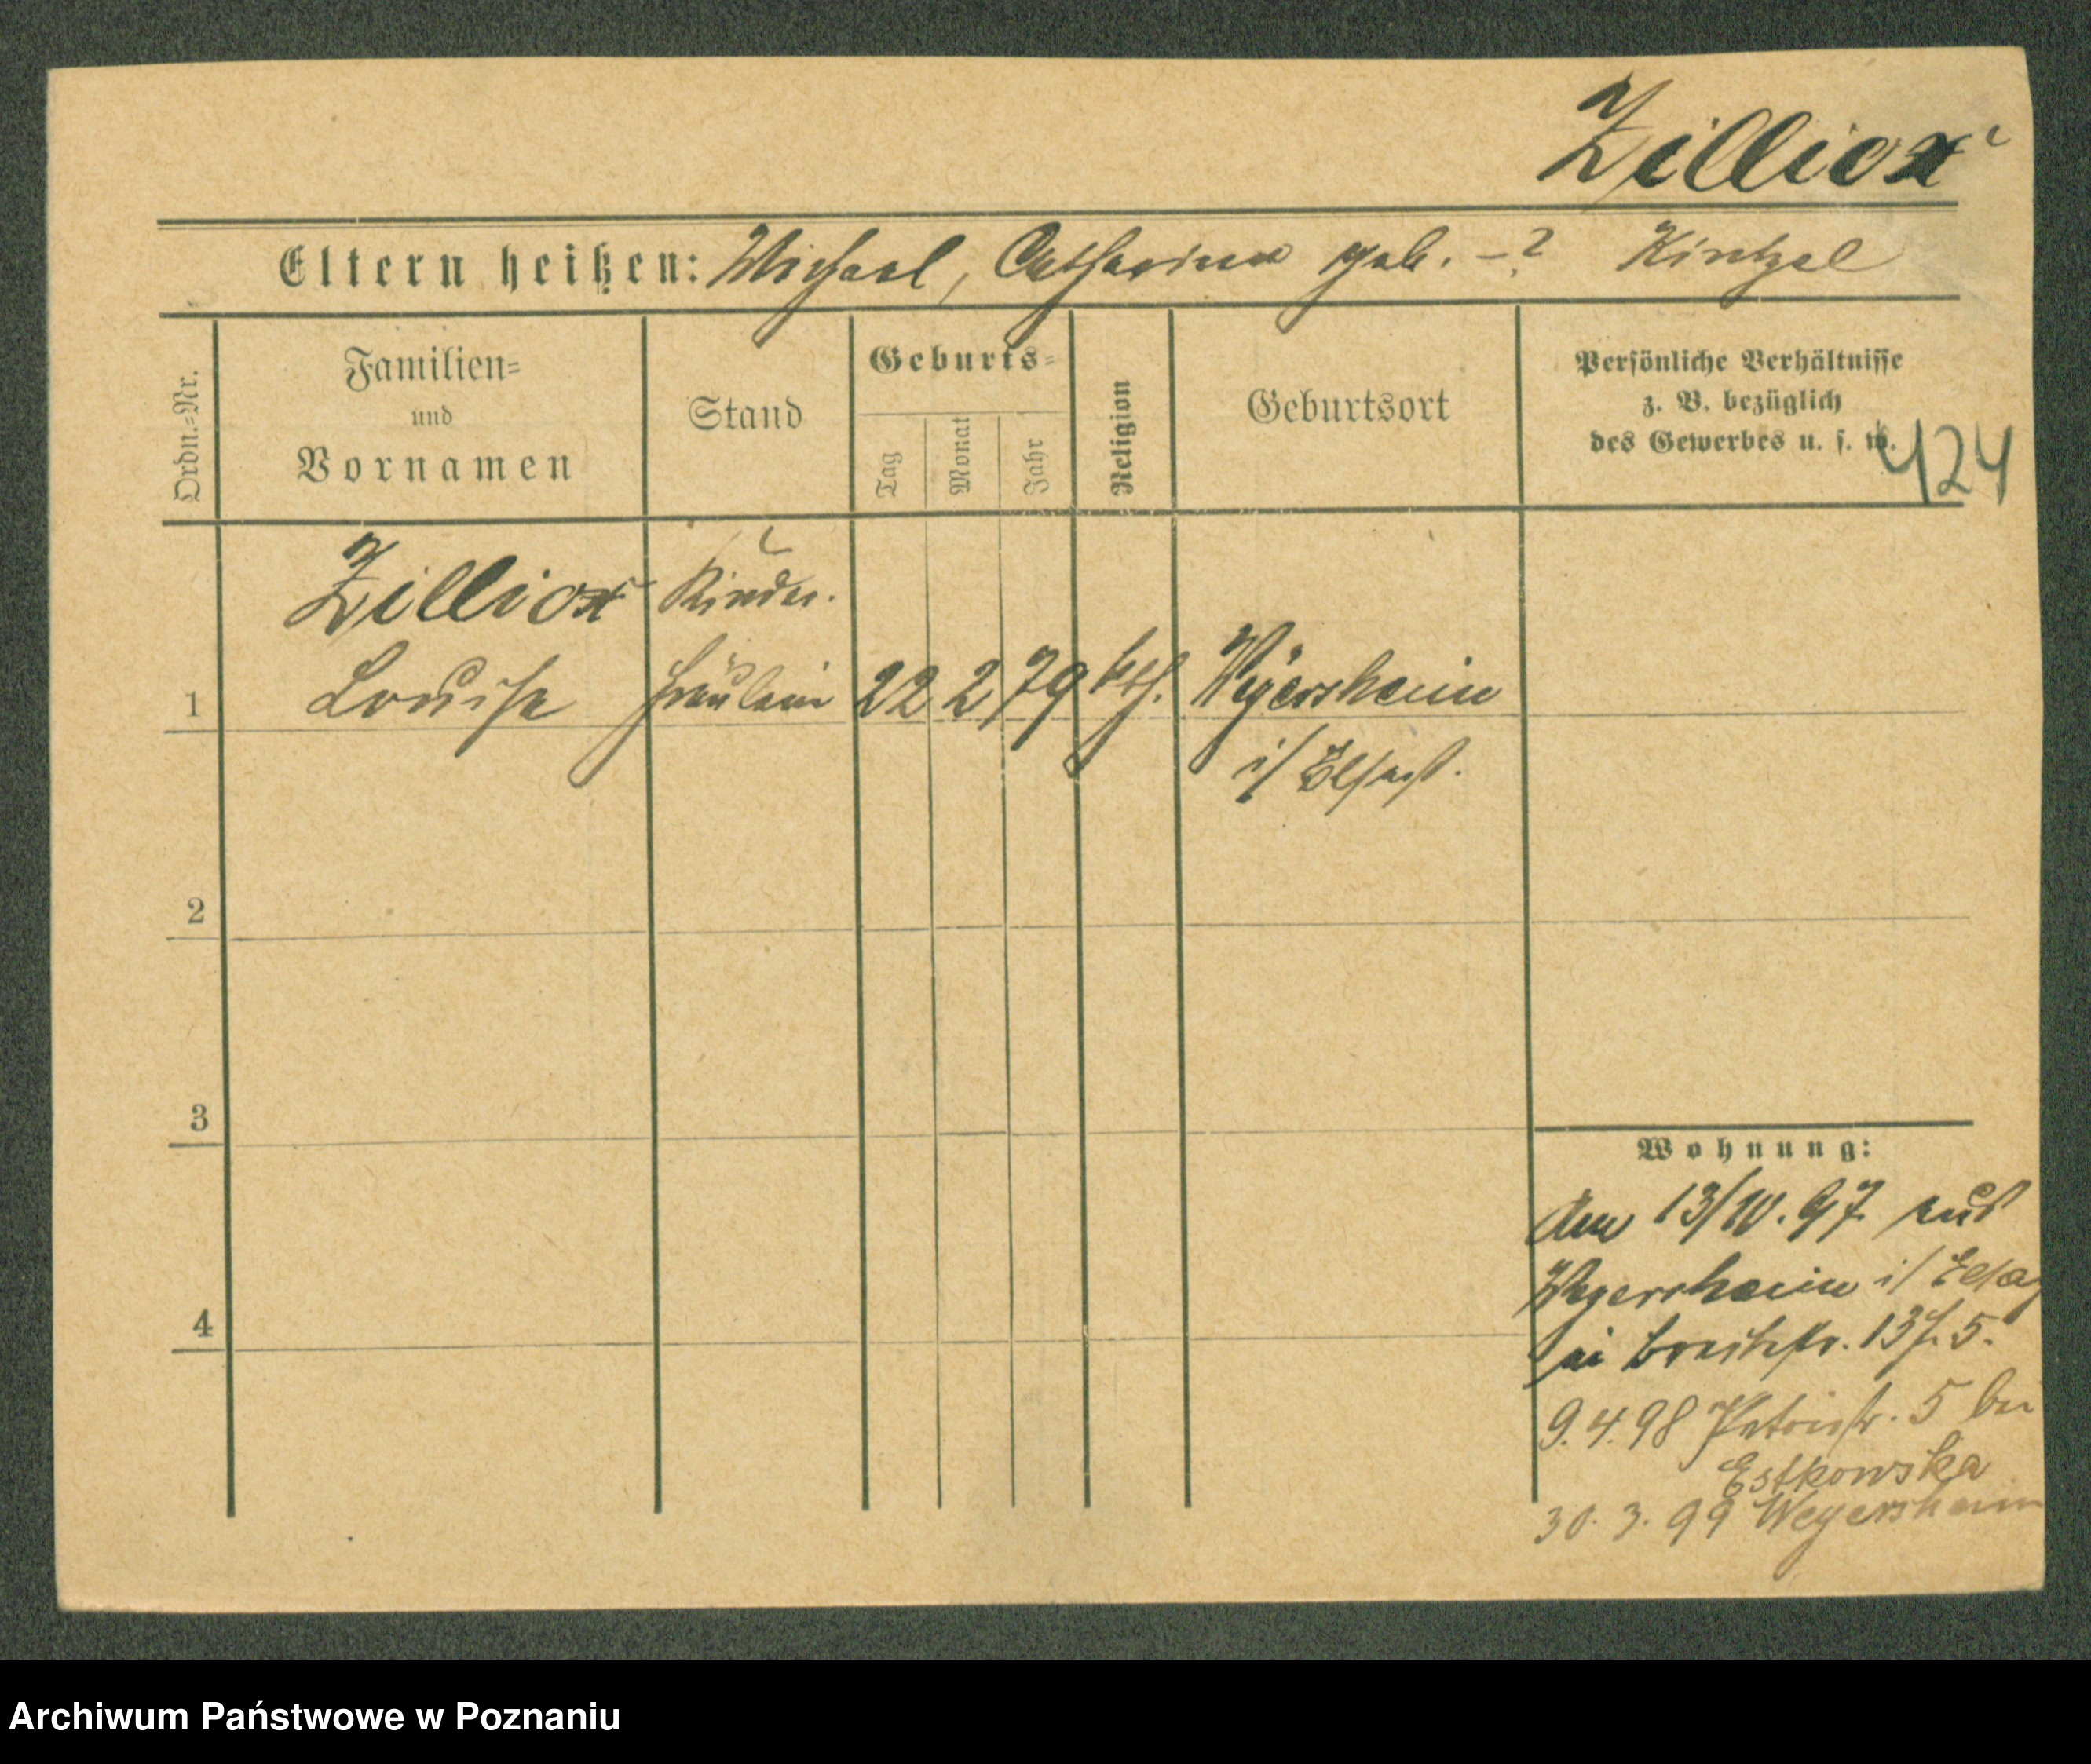 Zilliox
Eltern heißen: Michael, Catharina geb. -? Kintzel
Ordn.=Nr.
Familien=
und
Vornamen
Stand
Geburts=
Tag
Monat
Jahr
Religion
Geburtsort
Persönliche Verhältnisse
z. B. bezüglich
des Gewerbes u. s. w.
424
Zilliox Kinder.
1 Louise fräulein 22 2 79 kth. Weyersheim
i/ Elsaß.
2
3
4
Wohnung:
Am 13/10. 97 aus
Weyersheim i/ Elsaß
in Breitestr. 13 f. 5.
9. 4. 98 Petristr. 5 bei
Estkowska
30. 3. 99 Weyersheim
Archiwum Państwowe w Poznaniu